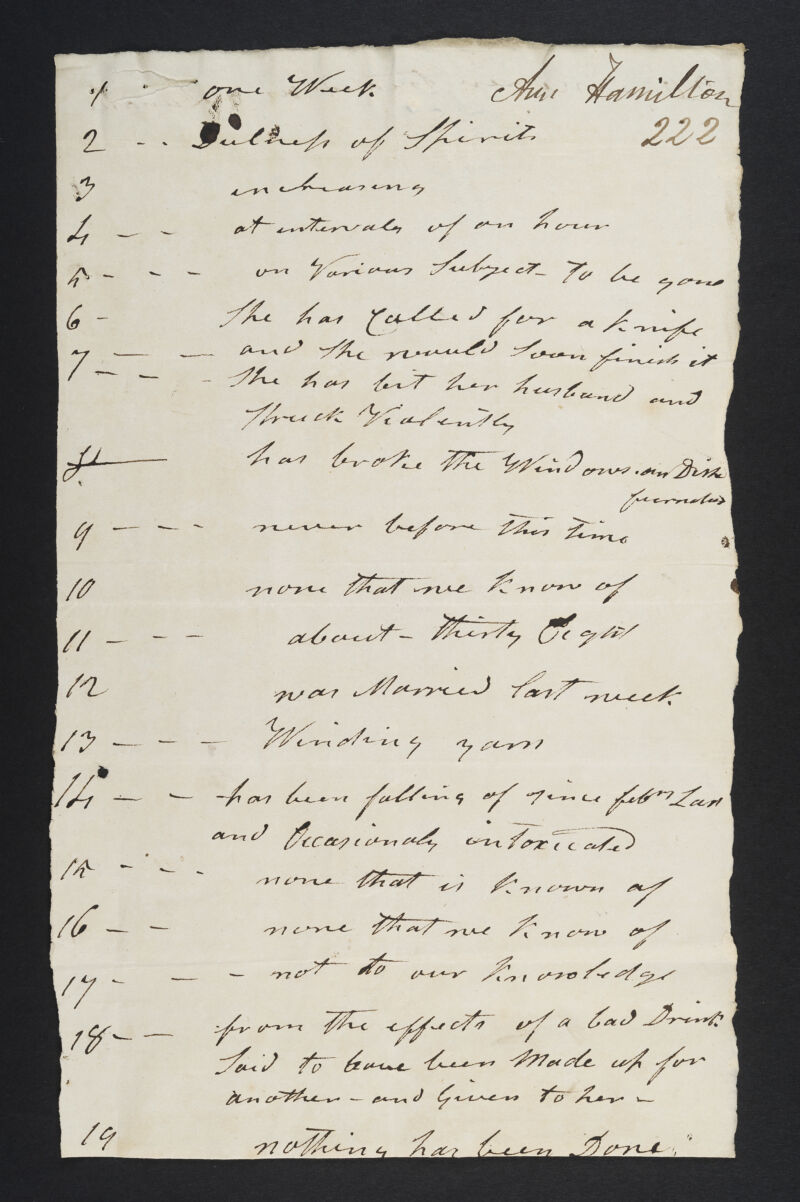 1 one Week Ann Hamilton
2 - - Dulness of Spirits 222
3 increasing
4 - - at intervals of an hour
5 - - - on Various Subject - to be gone
6 - She has Called for a Knife
7 - - - and She would Soon finish it
- - - She has bit her husband and
Struck Violently
8 has broke the Windows
9 - - - never before this time
10 none that we Know of
11 - - - about - thirty Eight
12 was Married last week
13 - - - Winding yarn
14 - - has been falling of since febry Last
and Occasionaly intoxicated
15 - - - none that is Known of
16 - - none that we Know of
17 - - - not to our Knowledge
18 - - from the effects of a bad Drink
Said to have been Made up for
another - and Given to her -
19 nothing has been Done